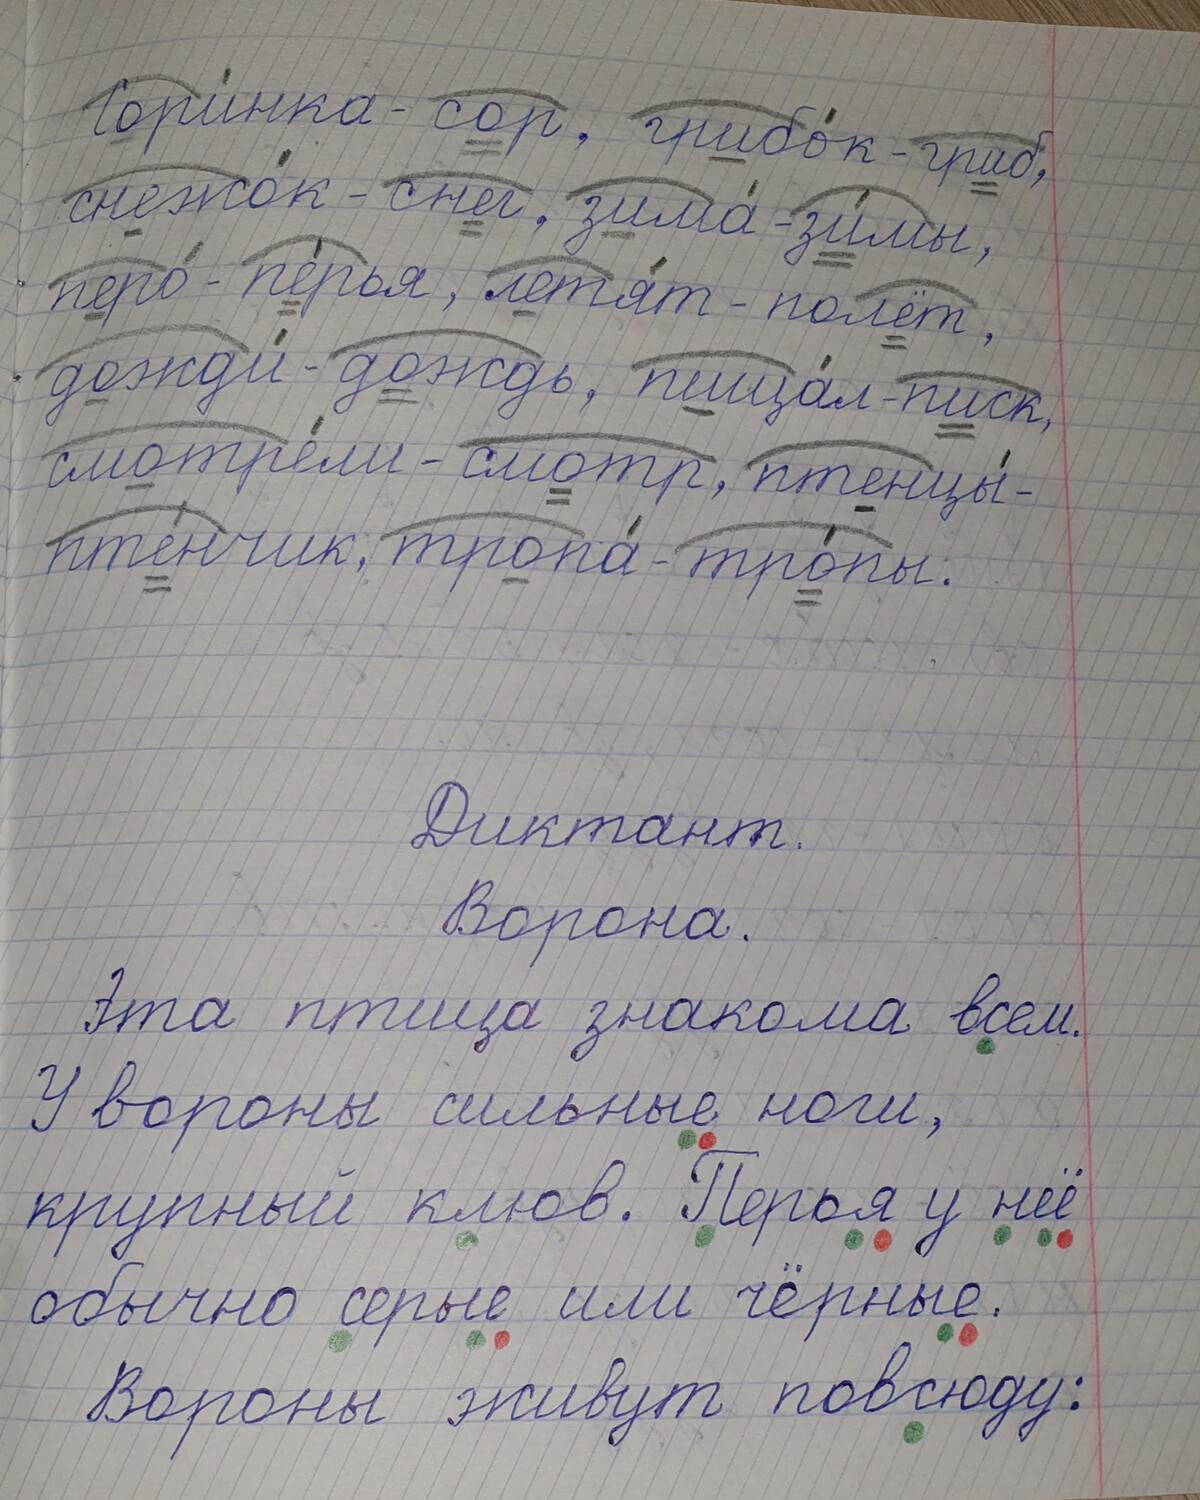 Сори́нка - сор, грибо́к - гриб,
снежо́к - снег, зима́ - зи́мы,
перо́ - пе́рья, летя́т - полёт,
дожди́ - дождь, пища́л - писк,
смотре́ли - смотр, птенцы́ -
пте́нчик, тропа́ - тро́пы.
Диктант.
Ворона.
Эта птица знакома всем.
У вороны сильные ноги,
крупный клюв. Перья у неё
обычно серые или чёрные.
Вороны живут повсюду: